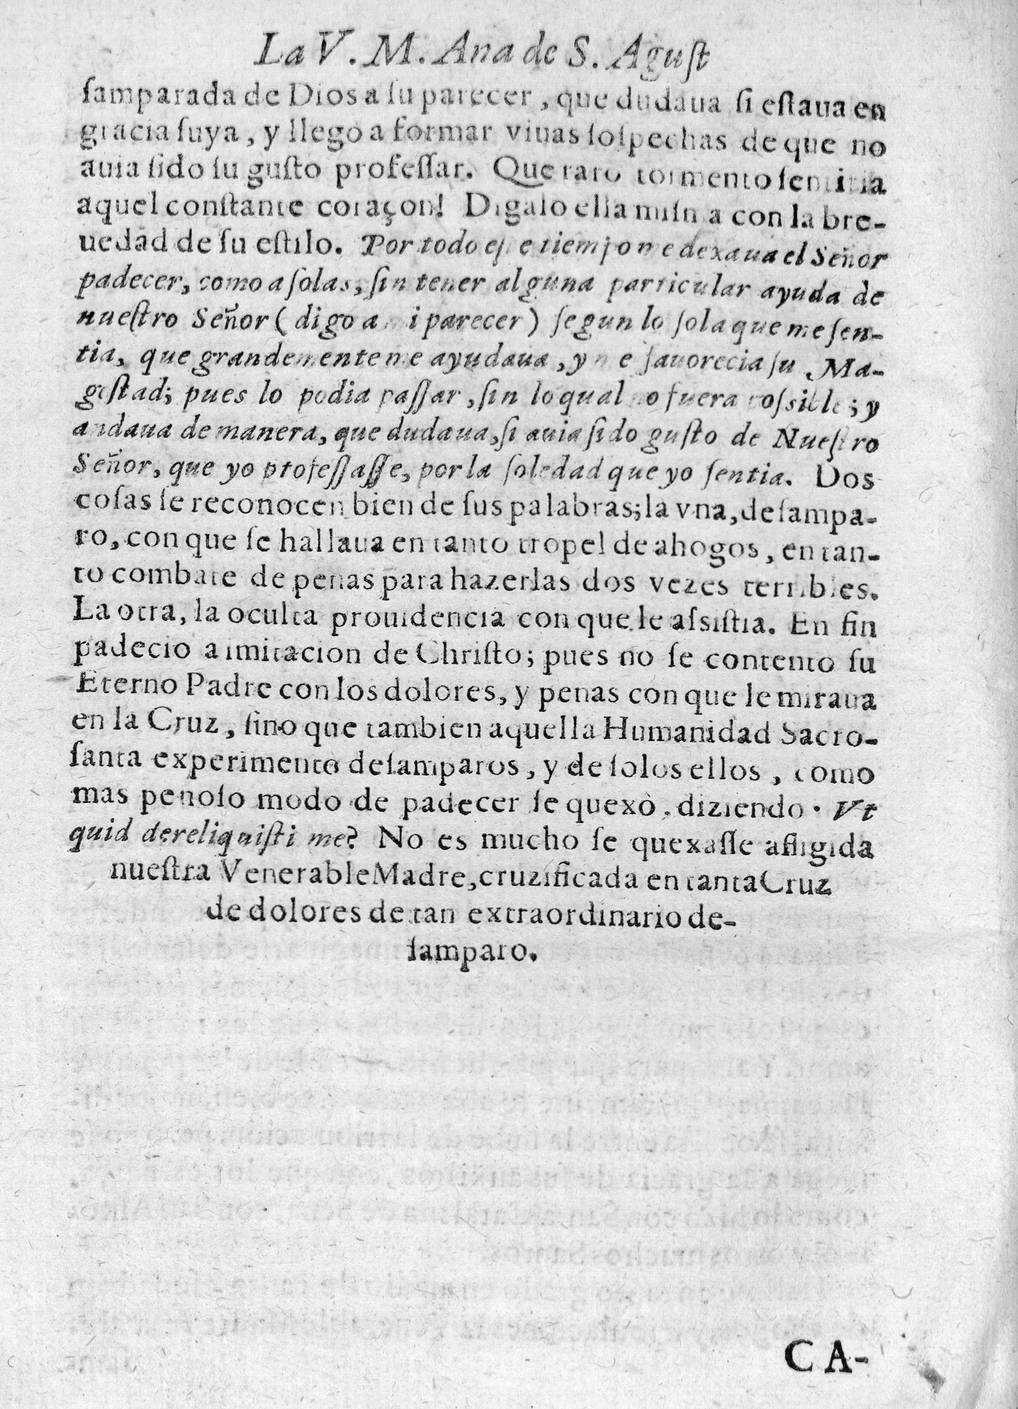 La V. M. Ana de S. Aguſt
ſamparada de Dios a ſu parecer, que dudaua ſi eſtaua en
gracia ſuya, y llego a formar viuas ſoſpechas de que no
auia ſido ſu guſto profeſſar. Que raro tormento ſentiria
aquel conſtante coraçon! Digalo ella miſma con la bre-
uedad de ſu eſtilo. Por todo eſte tiempo me dexaua el Señor
padecer, como a ſolas, ſin tener alguna particular ayuda de
nueſtro Señor (digo a mi parecer) ſegun lo ſola que me ſen-
tia, que grandemente me ayudaua, y me fauorecia ſu Ma-
geſtad; pues lo podia paſſar, ſin lo qual no fuera poſsible; y
andaua de manera, que dudaua, ſi auia ſido guſto de Nueſtro
Señor, que yo profeſſaſſe, por la ſoledad que yo ſentia. Dos
coſas ſe reconocen bien de ſus palabras; la vna, deſampa-
ro, con que ſe hallaua en tanto tropel de ahogos, en tan-
to combate de penas para hazerlas dos vezes terribles.
La otra, la oculta prouidencia con que le aſsiſtia. En fin
padecio a imitacion de Chriſto; pues no ſe contento ſu
Eterno Padre con los dolores, y penas con que le miraua
en la Cruz, ſino que tambien aquella Humanidad Sacro-
ſanta experimento deſamparos, y de ſolos ellos, como
mas penoſo modo de padecer ſe quexò, diziendo. Vt
quid dereliquiſti me? No es mucho ſe quexaſſe afligida
nueſtra Venerable Madre, cruzificada en tanta Cruz
de dolores de tan extraordinario de-
ſamparo.
CA-